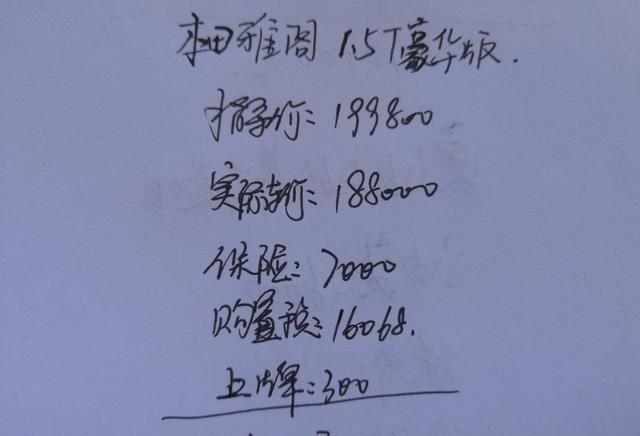 本田雅阁 1.5T豪华版.
指导价: 199800
实际车价: 188000
保险: 7000
购置税: 16068.
上牌: 300